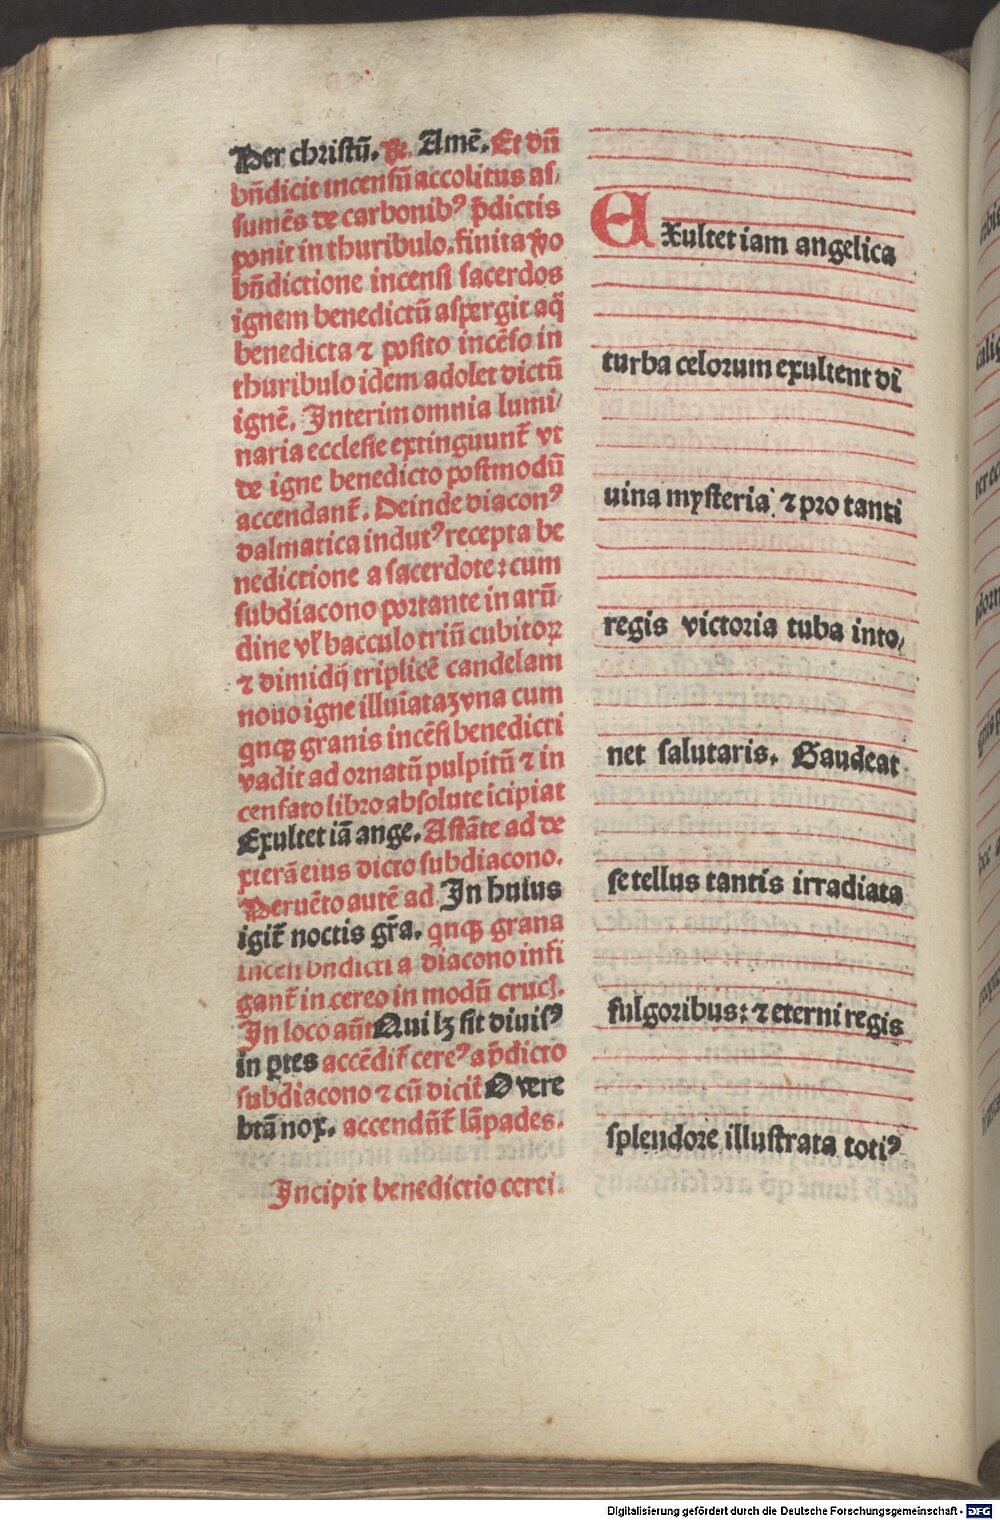 Per christū. ꝶ. Amē. Et dū
bn̄dicit incensū accolitus as⸗
sumēs de carbonibꝰ p̄dictis
ponit in thuribulo. finita v̄o
bn̄dictione incensi sacerdos
ignem benedictū aspergit aq̄
benedicta ⁊ posito incēso in
thuribulo idem adolet dictū
ignē. Interim omnia lumi⸗
naria ecclesie extinguunt᷑ vt
de igne benedicto postmodū
accendant᷑. Deinde diaconꝰ
dalmatica indutꝰ recepta be
nedictione a sacerdote: cum
subdiacono portante in arū⸗
dine vl̓ bacculo triū cubitoꝝ
⁊ dimidij triplicē candelam
nouo igne illuīataꝫ vna cum
qnqꝫ granis incēsi benedicti
vadit ad ornatū pulpitū ⁊ in
censato libro absolute īcipiat
Exultet iā ange. Astāte ad de
xterā eius dicto subdiacono.
Peruēto autē ad In huius
igit᷑ noctis gr̄a. qnqꝫ grana
incēsi bn̄dicti a diacono infi
gant᷑ in cereo in modū crucꝭ.
In loco aūt Qui lꝫ sit diuisꝰ
in ꝑtes accēdit᷑ cereꝰ a p̄dicto
subdiacono ⁊ cū dicit᷑ O vere
btā nox. accendūt᷑ lāpades.
Incipit benedictio cerei.
EXultet iam angelica
turba celorum exultent di
uina mysteria: ⁊ pro tanti
regis victoria tuba into⸗
net salutaris. Gaudeat
se tellus tantis irradiata
fulgoribus: ⁊ eterni regis
splendore illustrata totiꝰ
Digitalisierung gefördert durch die Deutsche Forschungsgemeinschaft - DFG